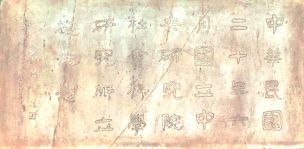 中華民國
二十年六
月國立中
央研究院
社會科學
研究所立